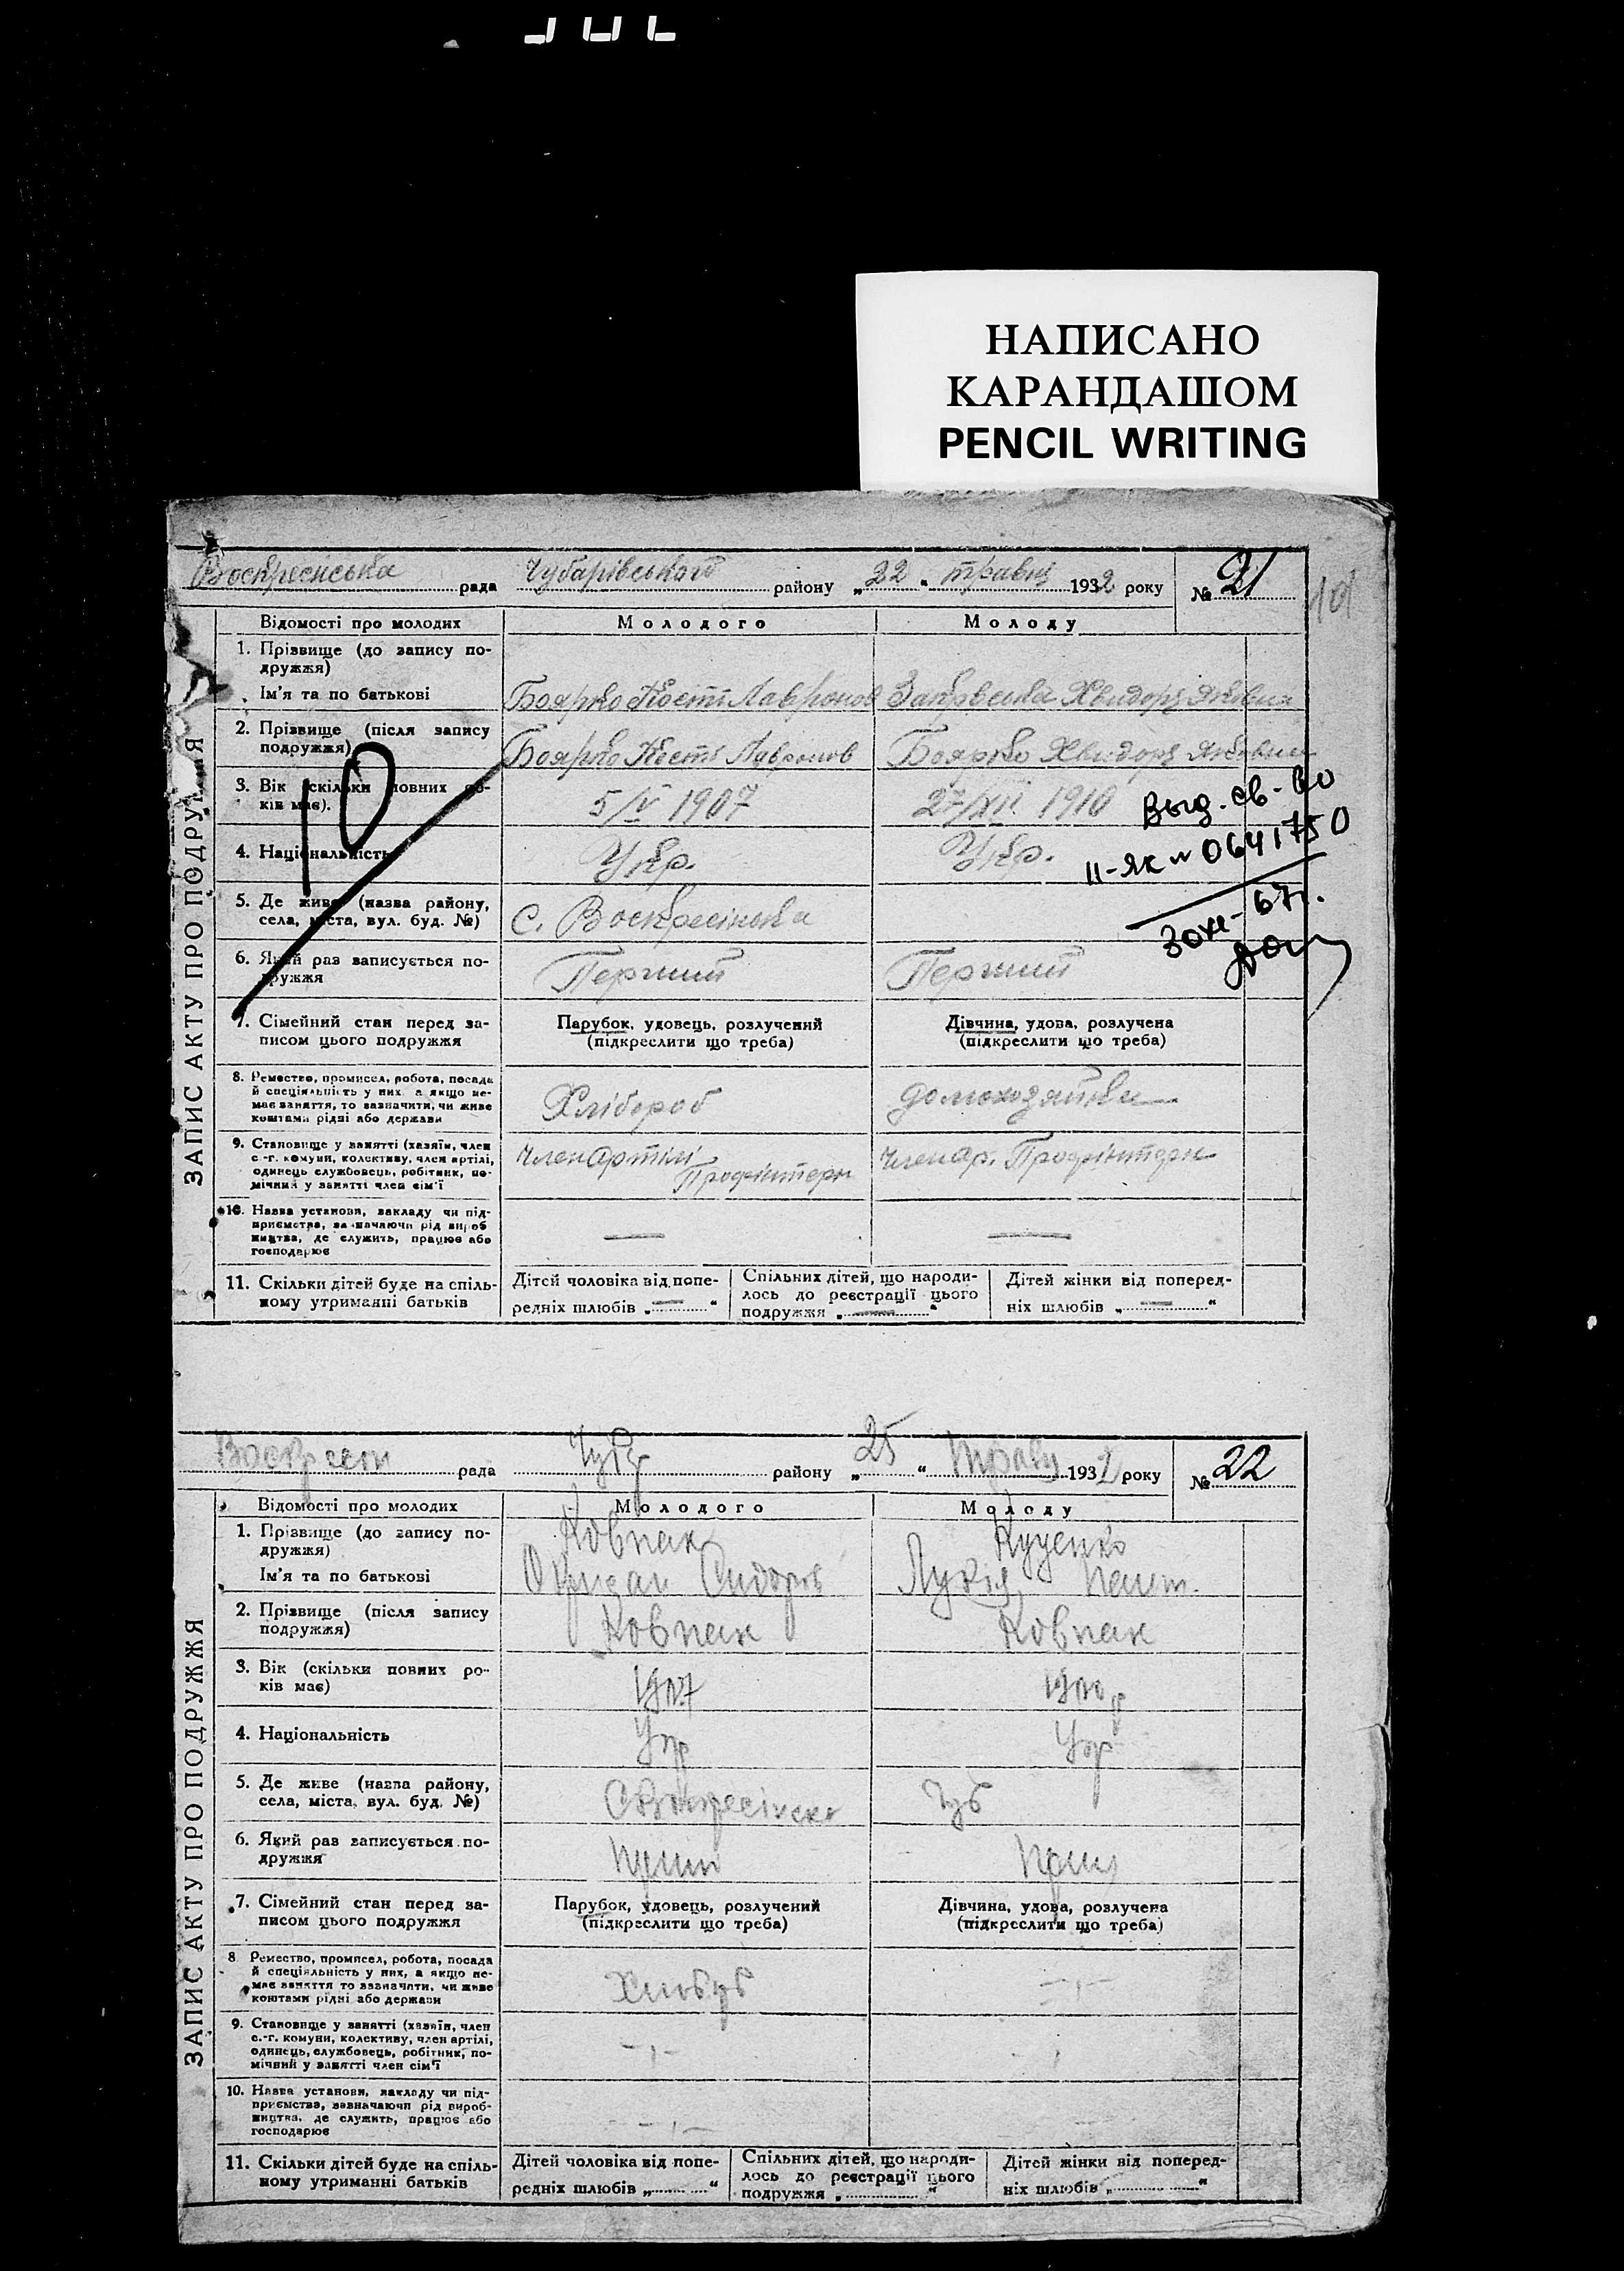 НАПИСАНО
КАРАНДАШОМ
PENCIL WRITING
Воскресінська рада Чубарівського району „22“ травня 1932 року № 21
Відомості про молодих Молодого Молоду
ЗАПИС АКТУ ПРО ПОДРУЖЖЯ
10
1. Прізвище (до запису по-
дружжя)
Ім'я та по батькові Боярко Кость Лавронов Хвидора Яківна
2. Прізвище (після запису
подружжя) Боярко Кость Лавронов Боярко Хвидора Яківна
3. Вік (скільки повних ро-
ків має). 5/IV 1907 27/XII 1910
Выд. св-во
II-ЯК № 0641750
4. Національність Укр. Укр.
5. Де живе (назва району,
села, міста, вул. буд. №) с. Воскресінка
67г.
6. Який раз записується по-
дружжя Перший Перший
7. Сімейний стан перед за-
писом цього подружжя
Парубок, удовець, розлучений
(підкреслити що треба)
Дівчина, удова, розлучена
(підкреслити що треба)
8. Ремество, промисел, робота, посада
й спеціяльність у них, а якщо не-
має заняття, то зазначити, чи живе
коштами рідні або держави
Хлібороб домохозяйка
9. Становище у занятті (хазяїн, член
с.-г. комуни, колективу, член артілі,
одинець службовець, робітник, по-
мічний у занятті член сім'ї
Член артілі Профінтерн Член ар. Профінтерн
10. Назва установи, закладу чи під-
приємства, зазначаючи рід вироб
ництва, де служить, працює або
господарює — —
11. Скільки дітей буде на спіль-
ному утриманні батьків
Дітей чоловіка від попе-
редніх шлюбів „—“
Спільних дітей, що народи-
лось до реєстрації цього
подружжя „—“
Дітей жінки від поперед-
ніх шлюбів „—“
Воскресен рада Чуб району „25“ Трав 1932 року № 22
Відомості про молодих Молодого Молоду
ЗАПИС АКТУ ПРО ПОДРУЖЖЯ
1. Прізвище (до запису по-
дружжя) Ковпак Куценко
Ім'я та по батькові Сидорів
2. Прізвище (після запису
подружжя) Ковпак Ковпак
3. Вік (скільки повних ро-
ків має) 1907
4. Національність Укр Укр
5. Де живе (назва району,
села, міста, вул. буд. №) Чуб
6. Який раз записується по-
дружжя
7. Сімейний стан перед за-
писом цього подружжя
Парубок, удовець, розлучений
(підкреслити що треба)
Дівчина, удова, розлучена
(підкреслити що треба)
8 Ремество, промисел, робота, посада
й спеціяльність у них, а якщо не-
має заняття то зазначити, чи живе
коштами рідні або держави
9. Становище у занятті (хазяїн, член
с.-г. комуни, колективу, член артілі,
одинець, службовець, робітник, по-
мічний у занятті член сім'ї
10. Назва установи, закладу чи під-
приємства, зазначаючи рід вироб-
ництва, де служить, працює або
господарює
11. Скільки дітей буде на спіль-
ному утриманні батьків
Дітей чоловіка від попе-
редніх шлюбів „ “
Спільних дітей, що народи-
лось до реєстрації цього
подружжя „ “
Дітей жінки від поперед-
ніх шлюбів „ “